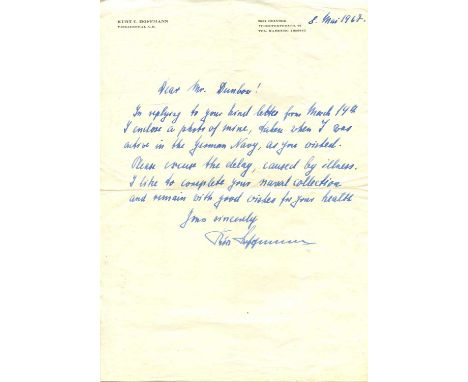 KURT C. HOFFMANN
VIZEADMIRAL A.D.
TEL. HAMBURG
8. Mai 1967.
Dear Mr. Dunbow!
In replying to your kind letter from March 14th
I enclose a photo of mine, taken when I was
active in the German Navy, as you wished.
Please excuse the delay, caused by illness.
I like to complete your naval collection
and remain with good wishes for your health
Yours sincerely
Hoffmann